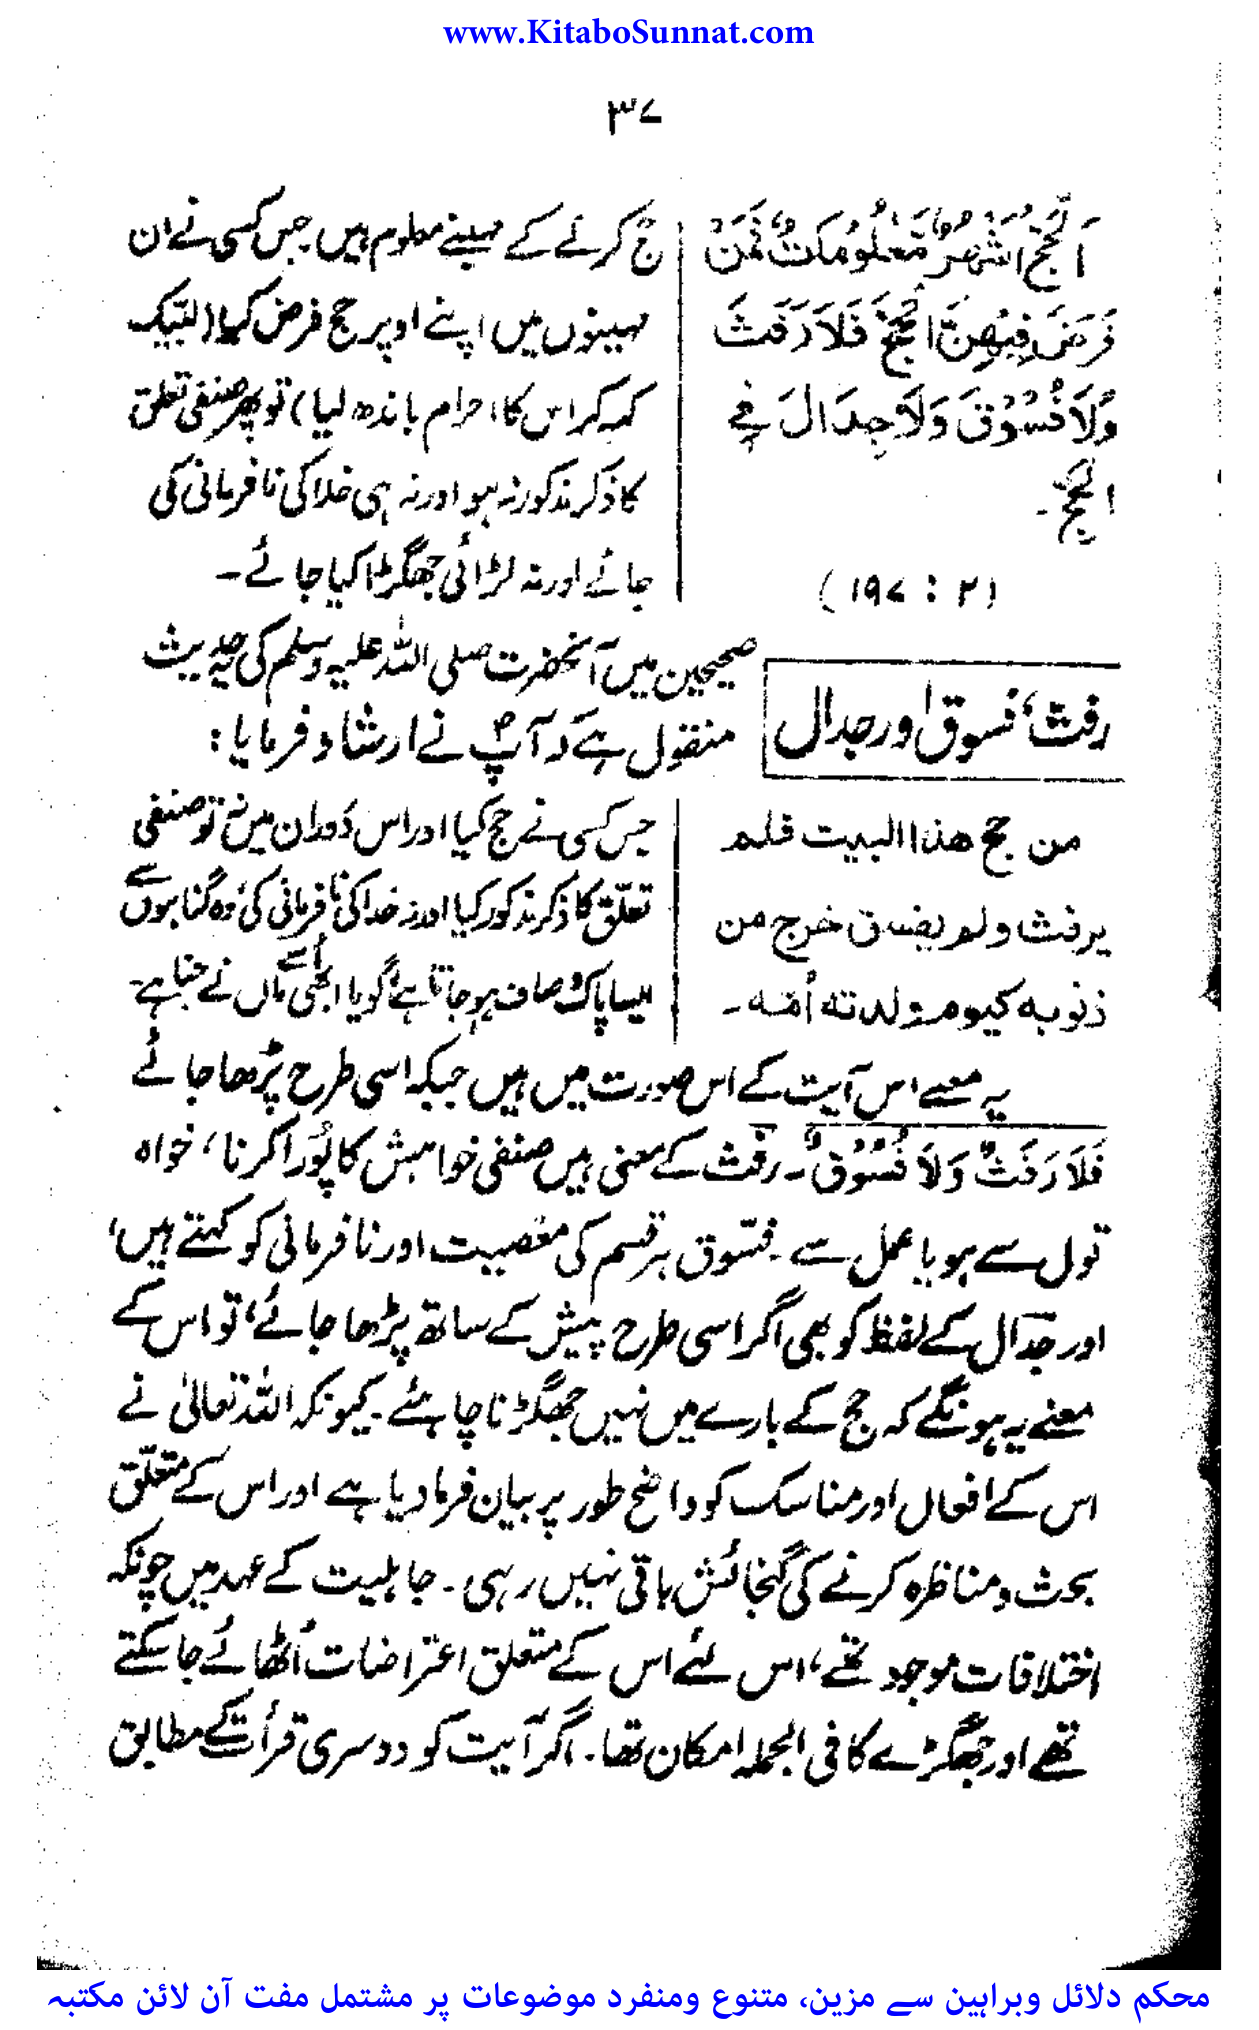 www.KitaboSunnat.com
۳۷
اَلْحَجُّ اَشْهُرٌ مَّعْلُوْمٰتٌ ۚ فَمَنْ
فَرَضَ فِيْهِنَّ الْحَجَّ فَلَا رَفَثَ
وَلَا فُسُوْقَ وَلَا جِدَالَ فِے
الْحَجِّ ۔
(۲ : ۱۹۷)
حج کرنے کے مہینے معلوم ہیں جس کسی نے ان
مہینوں میں اپنے اوپر حج فرض کیا (لبّیک
کہہ کر اس کا احرام باندھ لیا) تو پھر صنفی تعلق
کا ذکر مذکور نہ ہو اور نہ ہی خدا کی نافرمانی کی
جائے اور نہ لڑائی جھگڑا کیا جائے ۔
رفث، فسوق اور جدال
صحیحین میں آنحضرت صلی اللہ علیہ وسلم کی یہ حدیث
منقول ہے کہ آپؐ نے ارشاد فرمایا :
من حج هذا البيت فلم
يرفث ولم يفسق خرج من
ذنوبه كيوم ولدته أمّه ۔
جس کسی نے حج کیا اور اس دَوران میں نہ تو صنفی
تعلّق کا ذکر مذکور کیا اور نہ خدا کی نافرمانی کی، وہ گناہوں سے
ایسا پاک و صاف ہو جاتا ہے گویا ابھی اُسے ماں نے جنا ہے۔
یہ معنے اس آیت کے اس صورت میں ہیں جبکہ اسی طرح پڑھا جائے
فَلَا رَفَثٌ وَلَا فُسُوْقٌ ۔ رفث کے معنی ہیں صنفی خواہش کا پُورا کرنا، خواہ
قول سے ہو یا عمل سے ۔ فسّوق ہر قسم کی معصیت اور نافرمانی کو کہتے ہیں،
اور جدال کے لفظ کو بھی اگر اسی طرح پیش کے ساتھ پڑھا جائے، تو اس کے
معنے یہ ہونگے کہ حج کے بارے میں نہیں جھگڑنا چاہئے ۔ کیونکہ اللہ تعالیٰ نے
اس کے افعال اور مناسک کو واضح طور پر بیان فرما دیا ہے اور اس کے متعلّق
بحث و مناظرہ کرنے کی گنجائش باقی نہیں رہی ۔ جاہلیت کے عہد میں چونکہ
اختلافات موجود تھے، اس لئے اس کے متعلق اعتراضات اُٹھائے جا سکتے
تھے اور جھگڑے کا فی الجملہ امکان تھا ۔ اگر آیت کو دوسری قرأت کے مطابق
محکم دلائل وبراہین سے مزین، متنوع ومنفرد موضوعات پر مشتمل مفت آن لائن مکتبہ